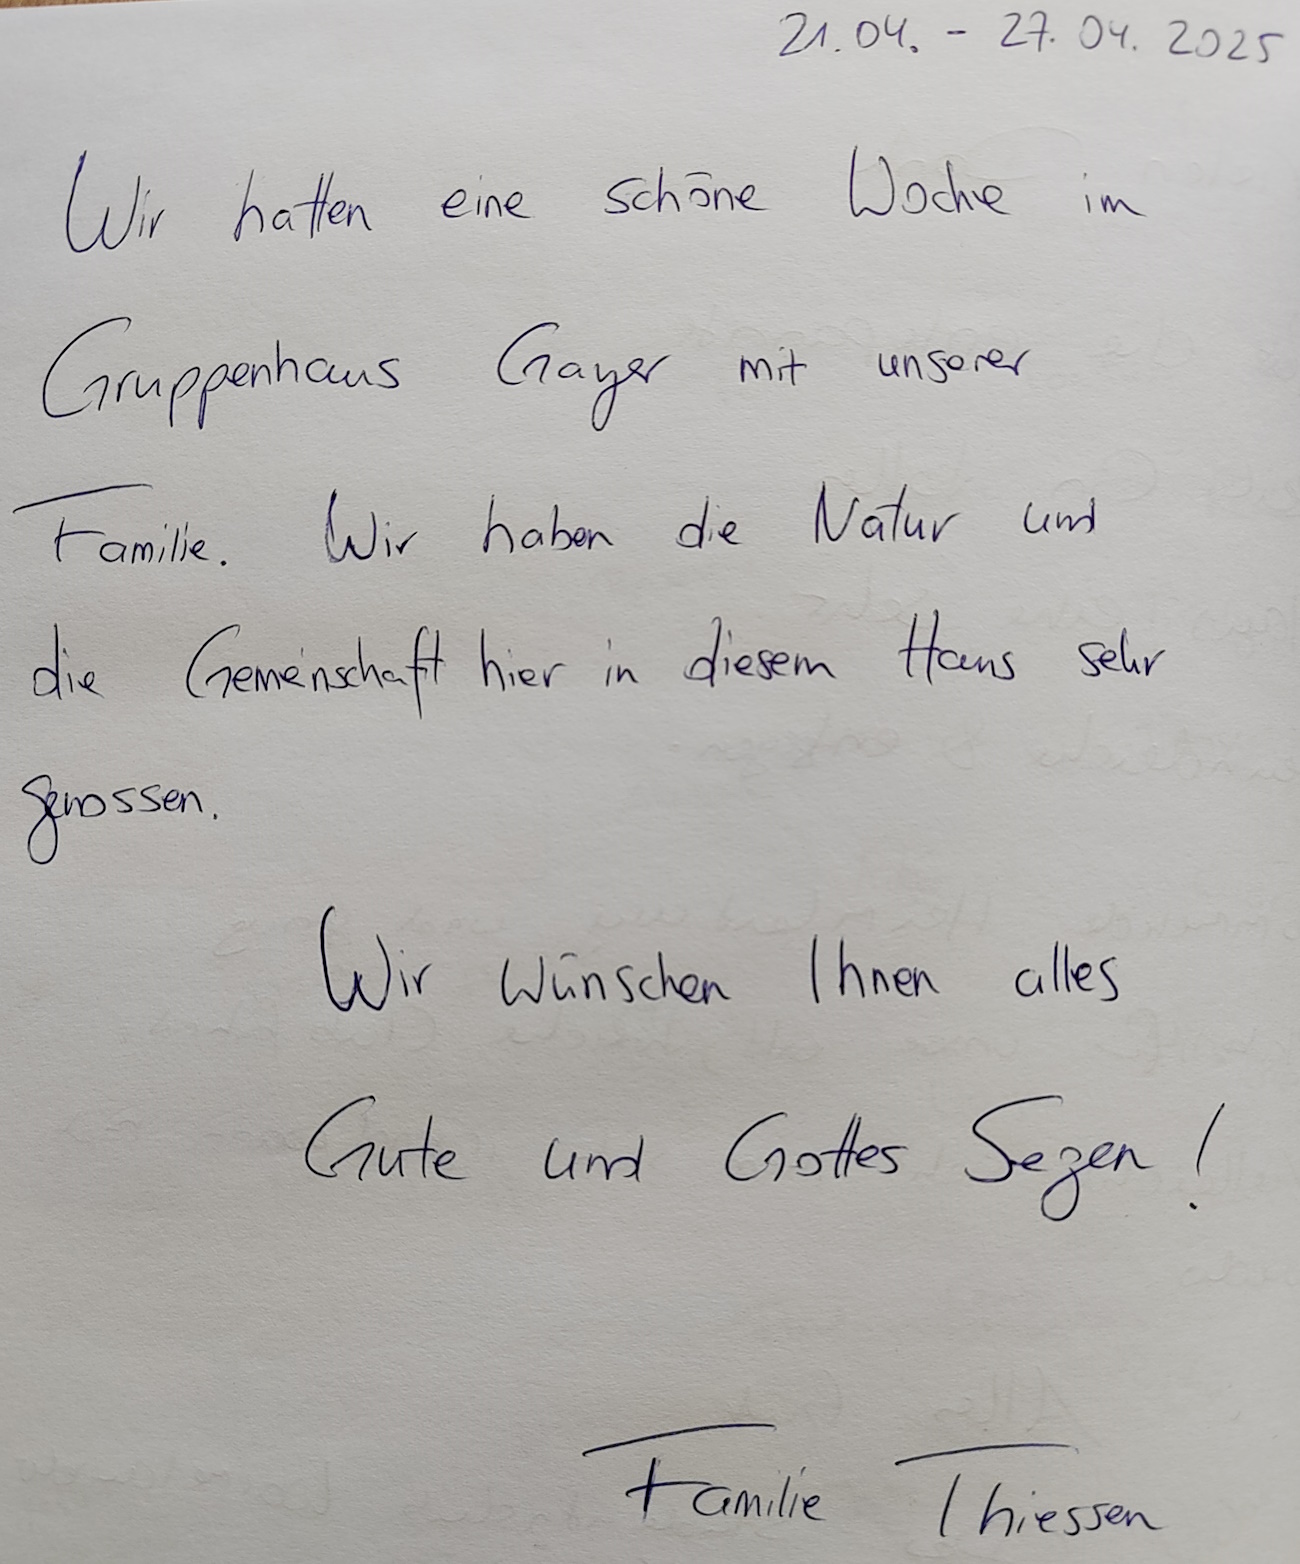 21.04. - 27.04.2025
Wir hatten eine schöne Woche im
Gruppenhaus Gayer mit unserer
Familie. Wir haben die Natur und
die Gemeinschaft hier in diesem Haus sehr
genossen.
Wir wünschen Ihnen alles
Gute und Gottes Segen!
Familie Thiessen